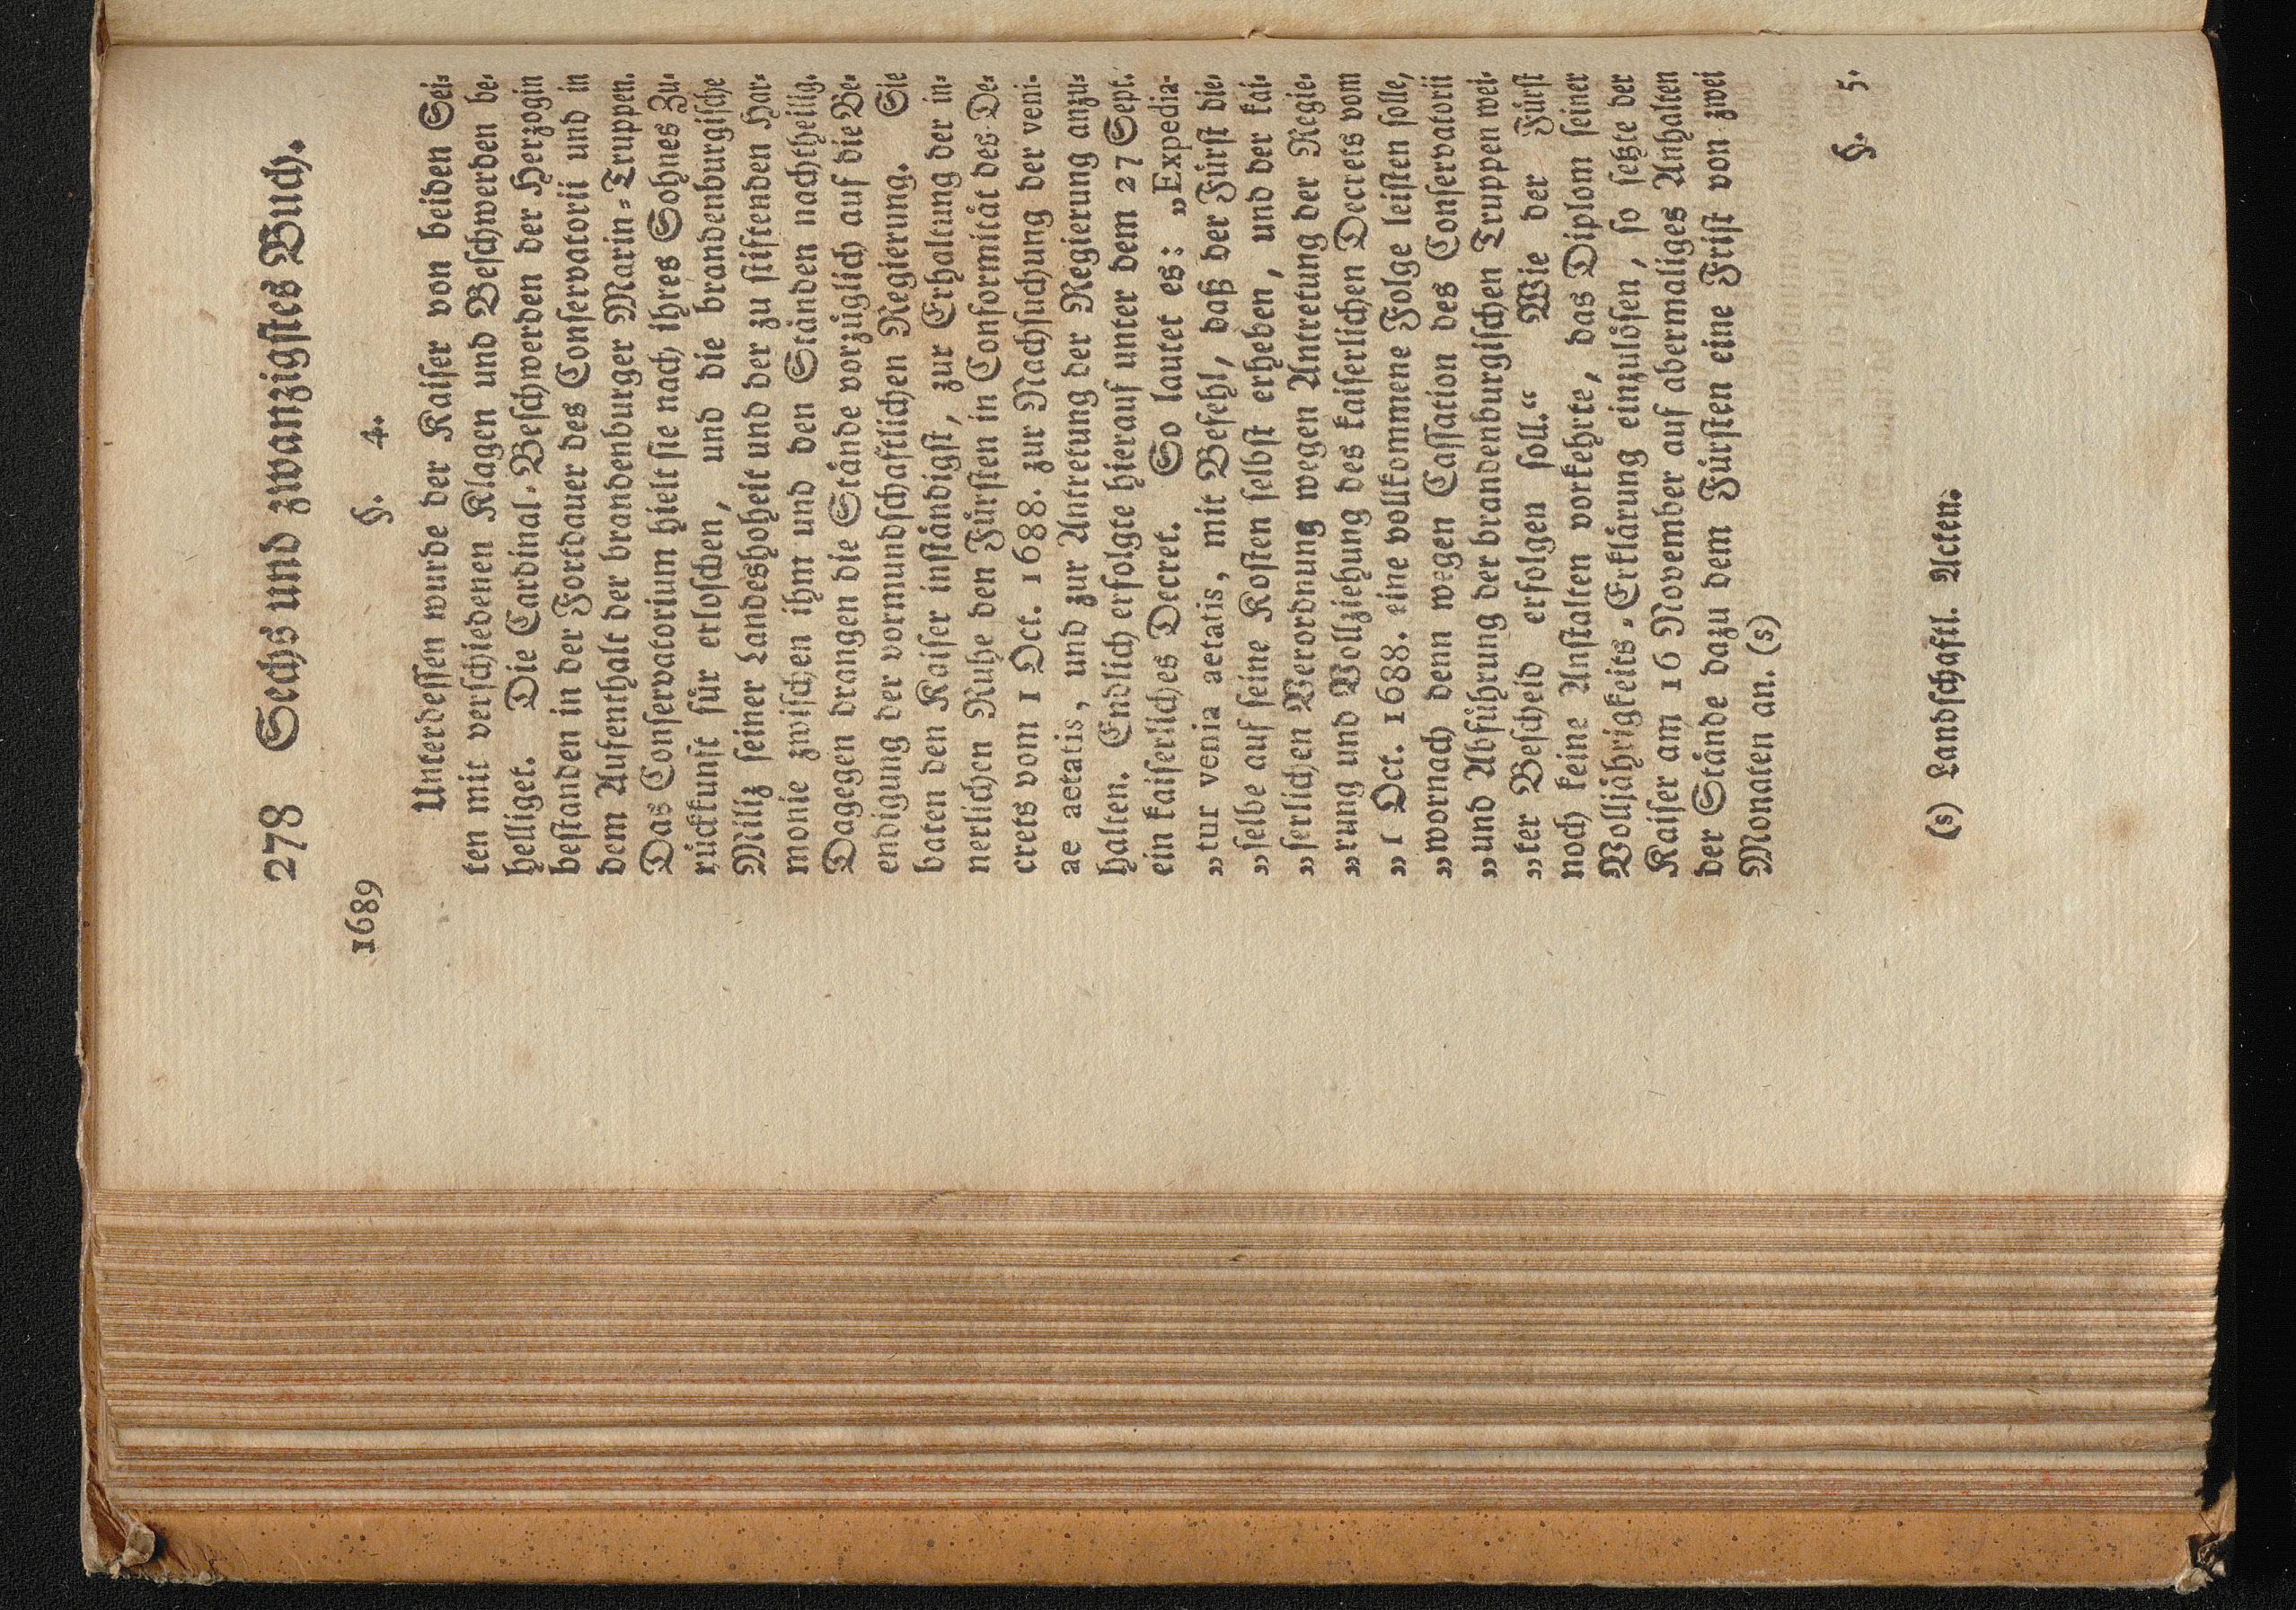 278 Sechs und zwanzigstes Buch.
1689
§. 4.
Unterdessen wurde der Kaiser von beiden Sei-
ten mit verschiedenen Klagen und Beschwerden be-
helliget. Die Cardinal-Beschwerden der Herzogin
bestanden in der Fortdauer des Conservatorii und in
dem Aufenthalt der brandenburger Marin-Truppen.
Das Conservatorium hielt sie nach ihres Sohnes Zu-
rückkunft für erloschen, und die brandenburgische
Miliz seiner Landeshoheit und der zu stiftenden Har-
monie zwischen ihm und den Ständen nachtheilig.
Dagegen drangen die Stände vorzüglich auf die Be-
endigung der vormundschaftlichen Regierung. Sie
baten den Kaiser inständigst, zur Erhaltung der in-
nerlichen Ruhe den Fürsten in Conformität des De-
crets vom 1 Oct. 1688. zur Nachsuchung der veni-
ae aetatis, und zur Antretung der Regierung anzu-
halten. Endlich erfolgte hierauf unter dem 27 Sept.
ein kaiserliches Decret. So lautet es: „Expedia-
„tur venia aetatis, mit Befehl, daß der Fürst die-
„selbe auf seine Kosten selbst erheben, und der kai-
„serlichen Verordnung wegen Antretung der Regie-
„rung und Vollziehung des kaiserlichen Decrets vom
„1 Oct. 1688. eine vollkommene Folge leisten solle,
„wornach denn wegen Cassation des Conservatorii
„und Abführung der brandenburgischen Truppen wei-
„ter Bescheid erfolgen soll.“ Wie der Fürst
noch keine Anstalten vorkehrte, das Diplom seiner
Volljährigkeits-Erklärung einzulösen, so setzte der
Kaiser am 16 November auf abermaliges Anhalten
der Stände dazu dem Fürsten eine Frist von zwei
Monaten an. (s)
§. 5.
(s) Landschaftl. Acten.